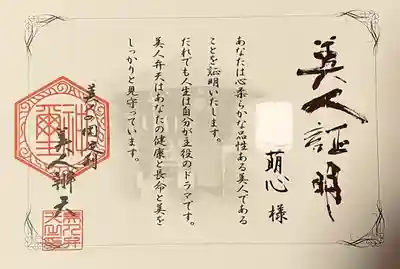 美人証明
萠心 様
あなたは心柔らかな品性ある美人である
ことを証明いたします。
だれでも人生は自分が主役のドラマです。
美人弁天はあなたの健康と長命と美を
しっかりと見守っています。
美人弁天